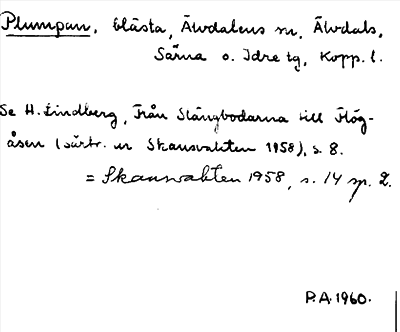 Plumpan, Elästa, Älvdalens sn, Älvdals,
Särna o. Idre tg, Kopp. l.
Se H. Lindberg, Från Slängbodarna till Hög-
åsen (särtr. ur Skansvakten 1958), s. 8.
= Skansvakten 1958, s. 14 sp. 2.
P.A. 1960.